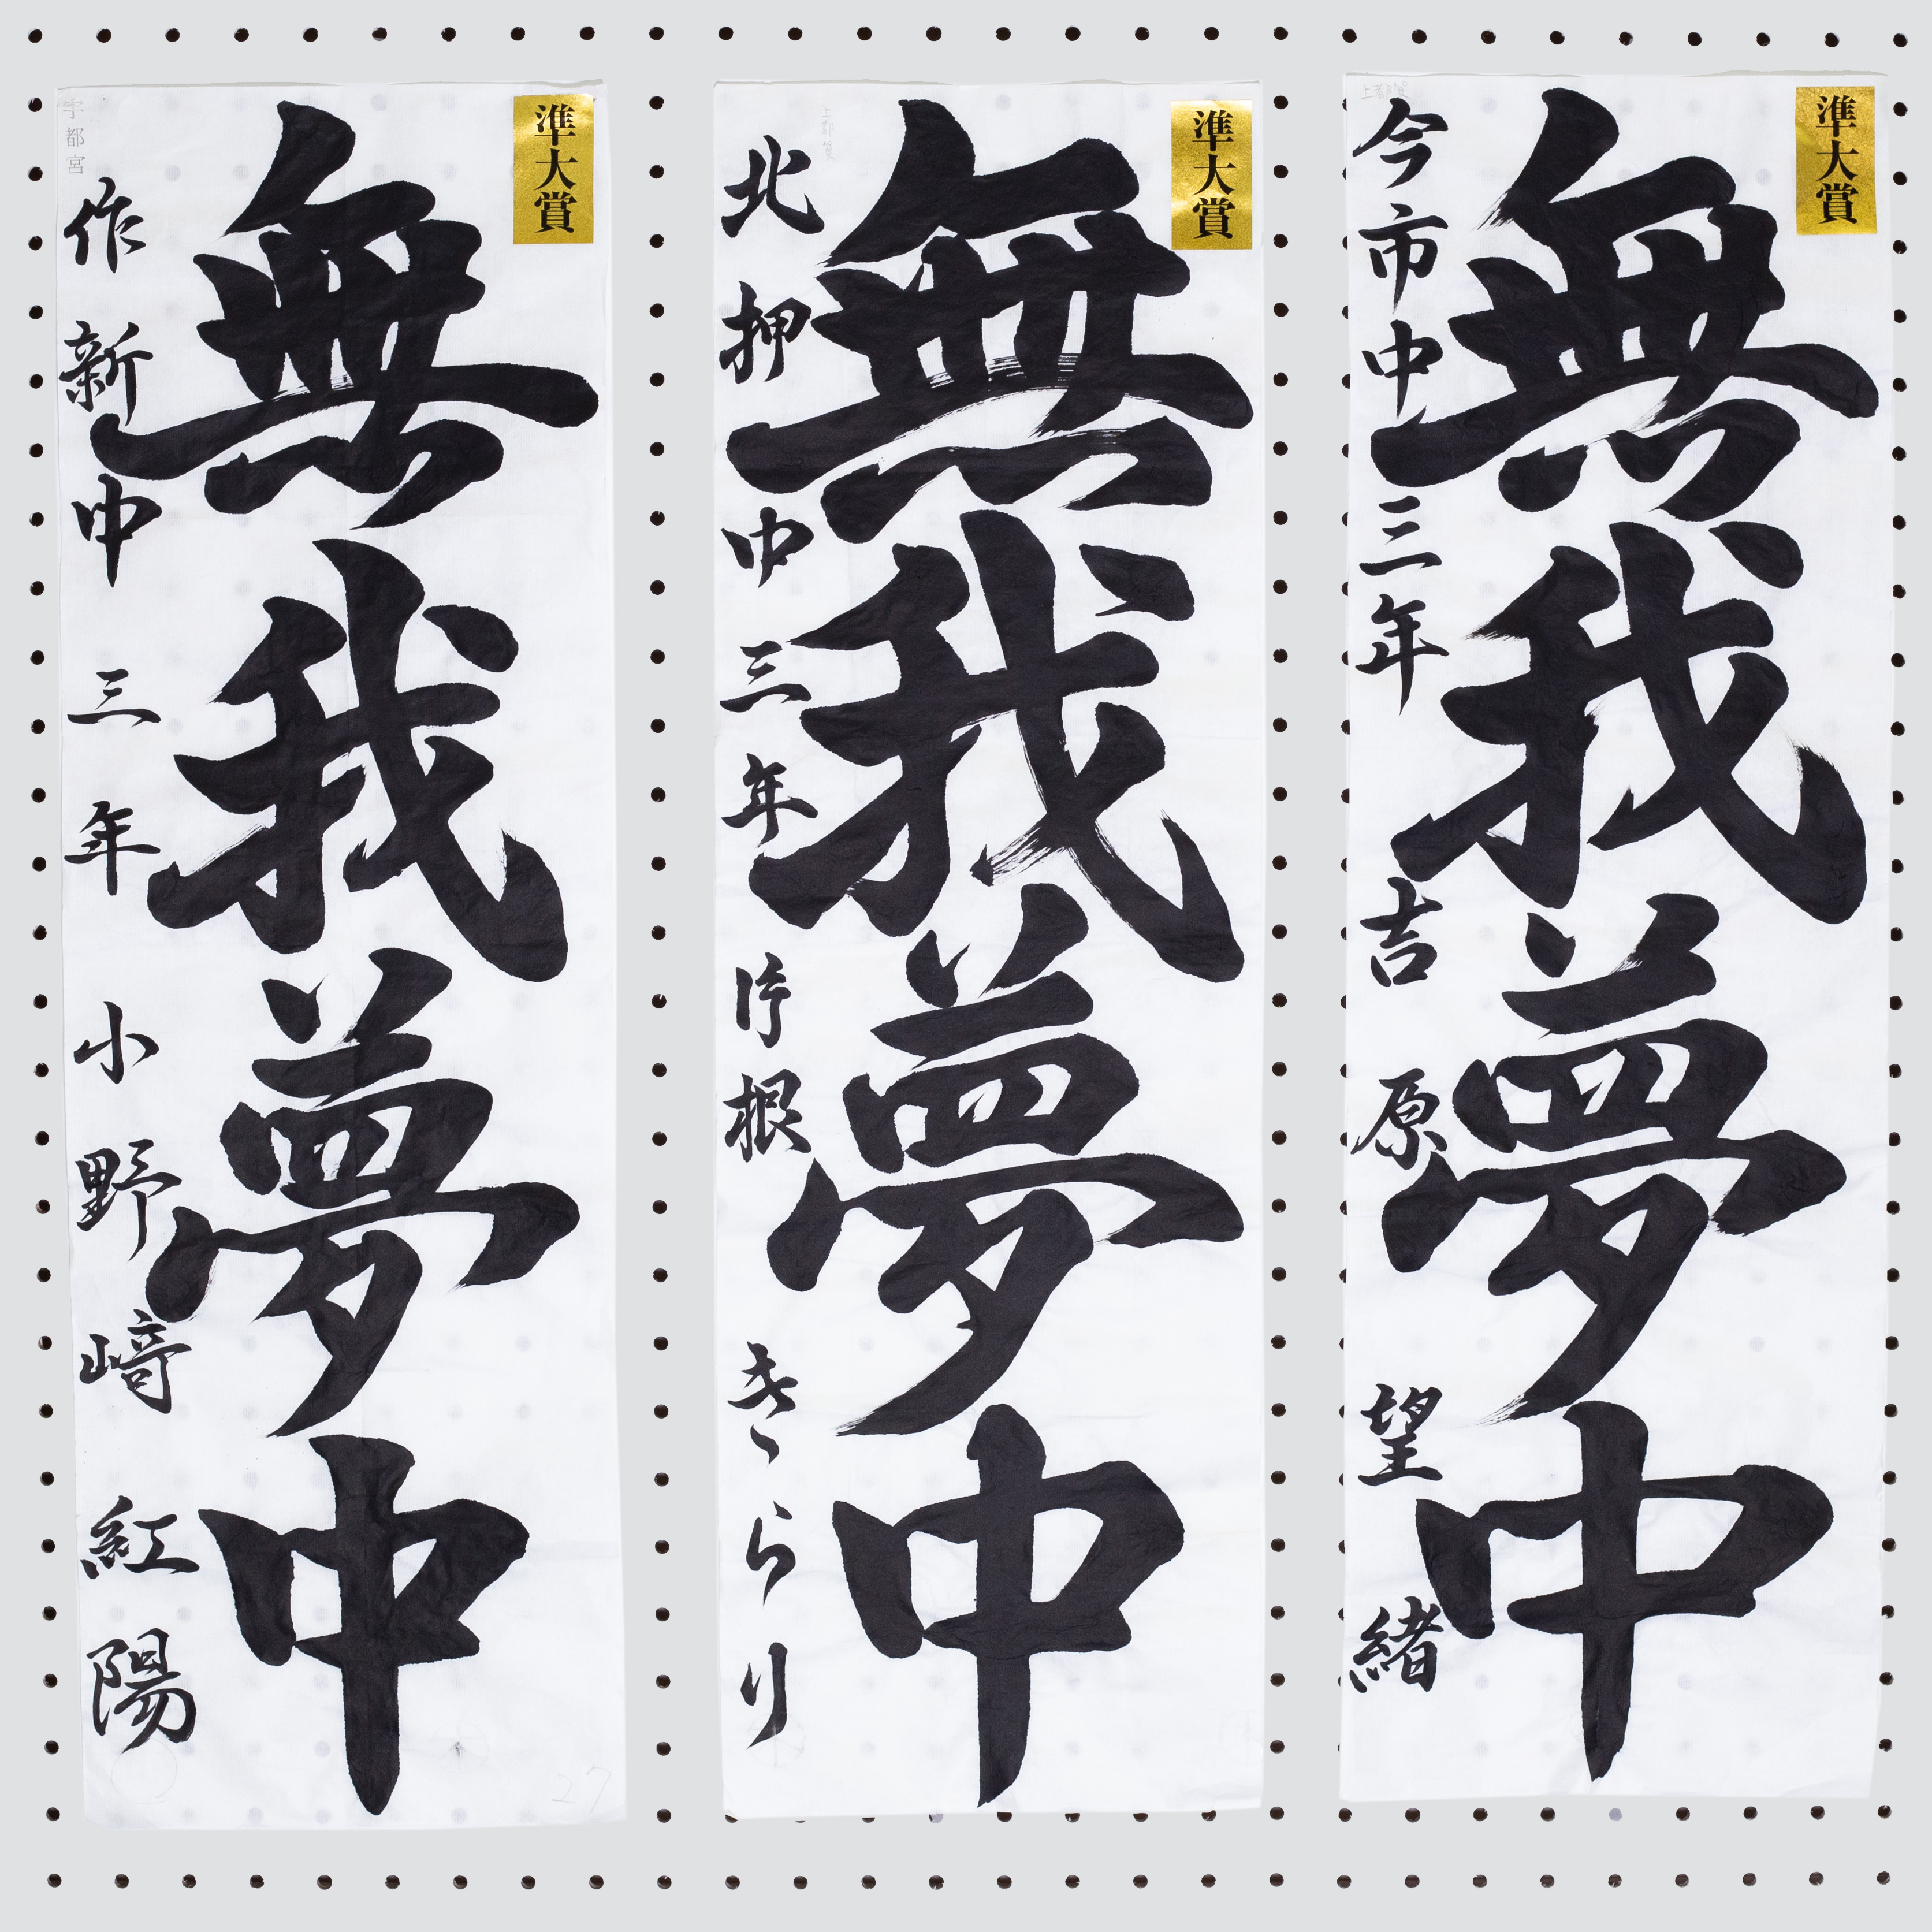 準大賞
無我夢中
今市中三年 吉原望緒
上都賀
準大賞
無我夢中
上都賀
北押中三年 根きらり
準大賞
無我夢中
宇都宮
作新中三年 小野﨑紅陽
27